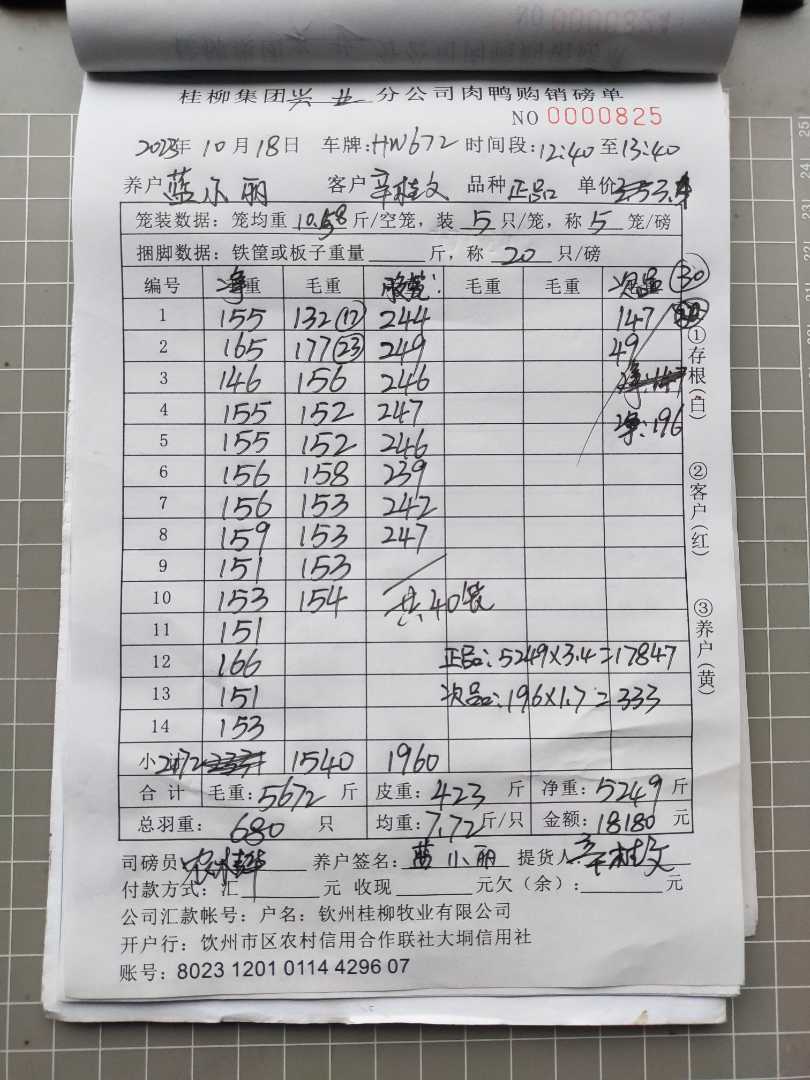 桂柳集团兴业分公司肉鸭购销磅单
NO 0000825
2023年10月18日 车牌:HW672 时间段:12:40至13:40
养户蓝小丽 客户辛桂文 品种正品 单价3.4
笼装数据：笼均重 10.58 斤/空笼，装 5 只/笼，称 5 笼/磅
捆脚数据：铁筐或板子重量 斤，称 20 只/磅
编号 净重 毛重 毛重 毛重 次品 30
1 155 132 (17) 244 147
2 165 177 (23) 249 49
3 146 156 246 净:147
4 155 152 247 净:196
5 155 152 246
6 156 158 239
7 156 153 242
8 159 153 247
9 151 153
10 153 154 共40笼
11 151
12 166 正品:5249×3.4=17847
13 151 次品:196×1.7=333
14 153
小计 2172 1540 1960
合计 毛重:5672斤 皮重:423斤 净重:5249斤
总羽重：680只 均重:7.72斤/只 金额:18180元
司磅员: 养户签名:蓝小丽 提货人:辛桂文
付款方式：汇 元 收现 元欠（余）: 元
公司汇款帐号：户名：钦州桂柳牧业有限公司
开户行：饮州市区农村信用合作联社大垌信用社
账号：8023 1201 0114 4296 07
①存根(白)
②客户(红)
③养户(黄)